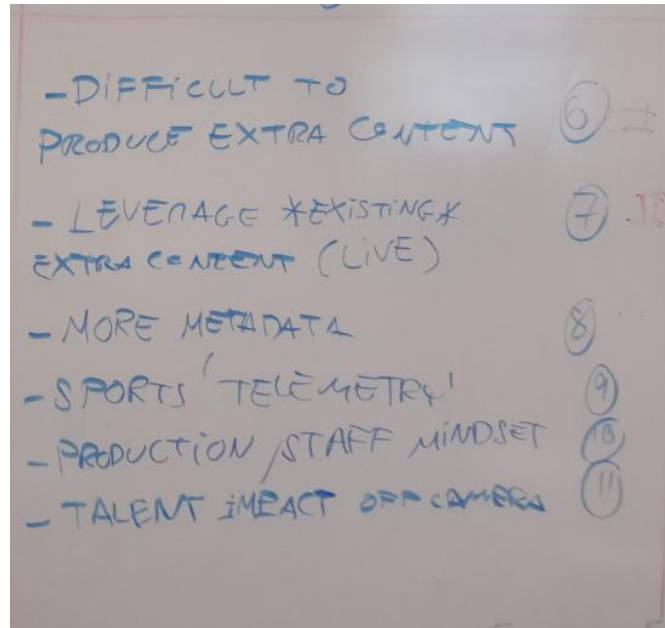 - DIFFICULT TO
PRODUCE EXTRA CONTENT 6
- LEVERAGE *EXISTING* 7
EXTRA CONTENT (LIVE)
- MORE METADATA 8
- SPORTS 'TELEMETRY' 9
- PRODUCTION/STAFF MINDSET 10
- TALENT IMPACT OFF CAMERA 11